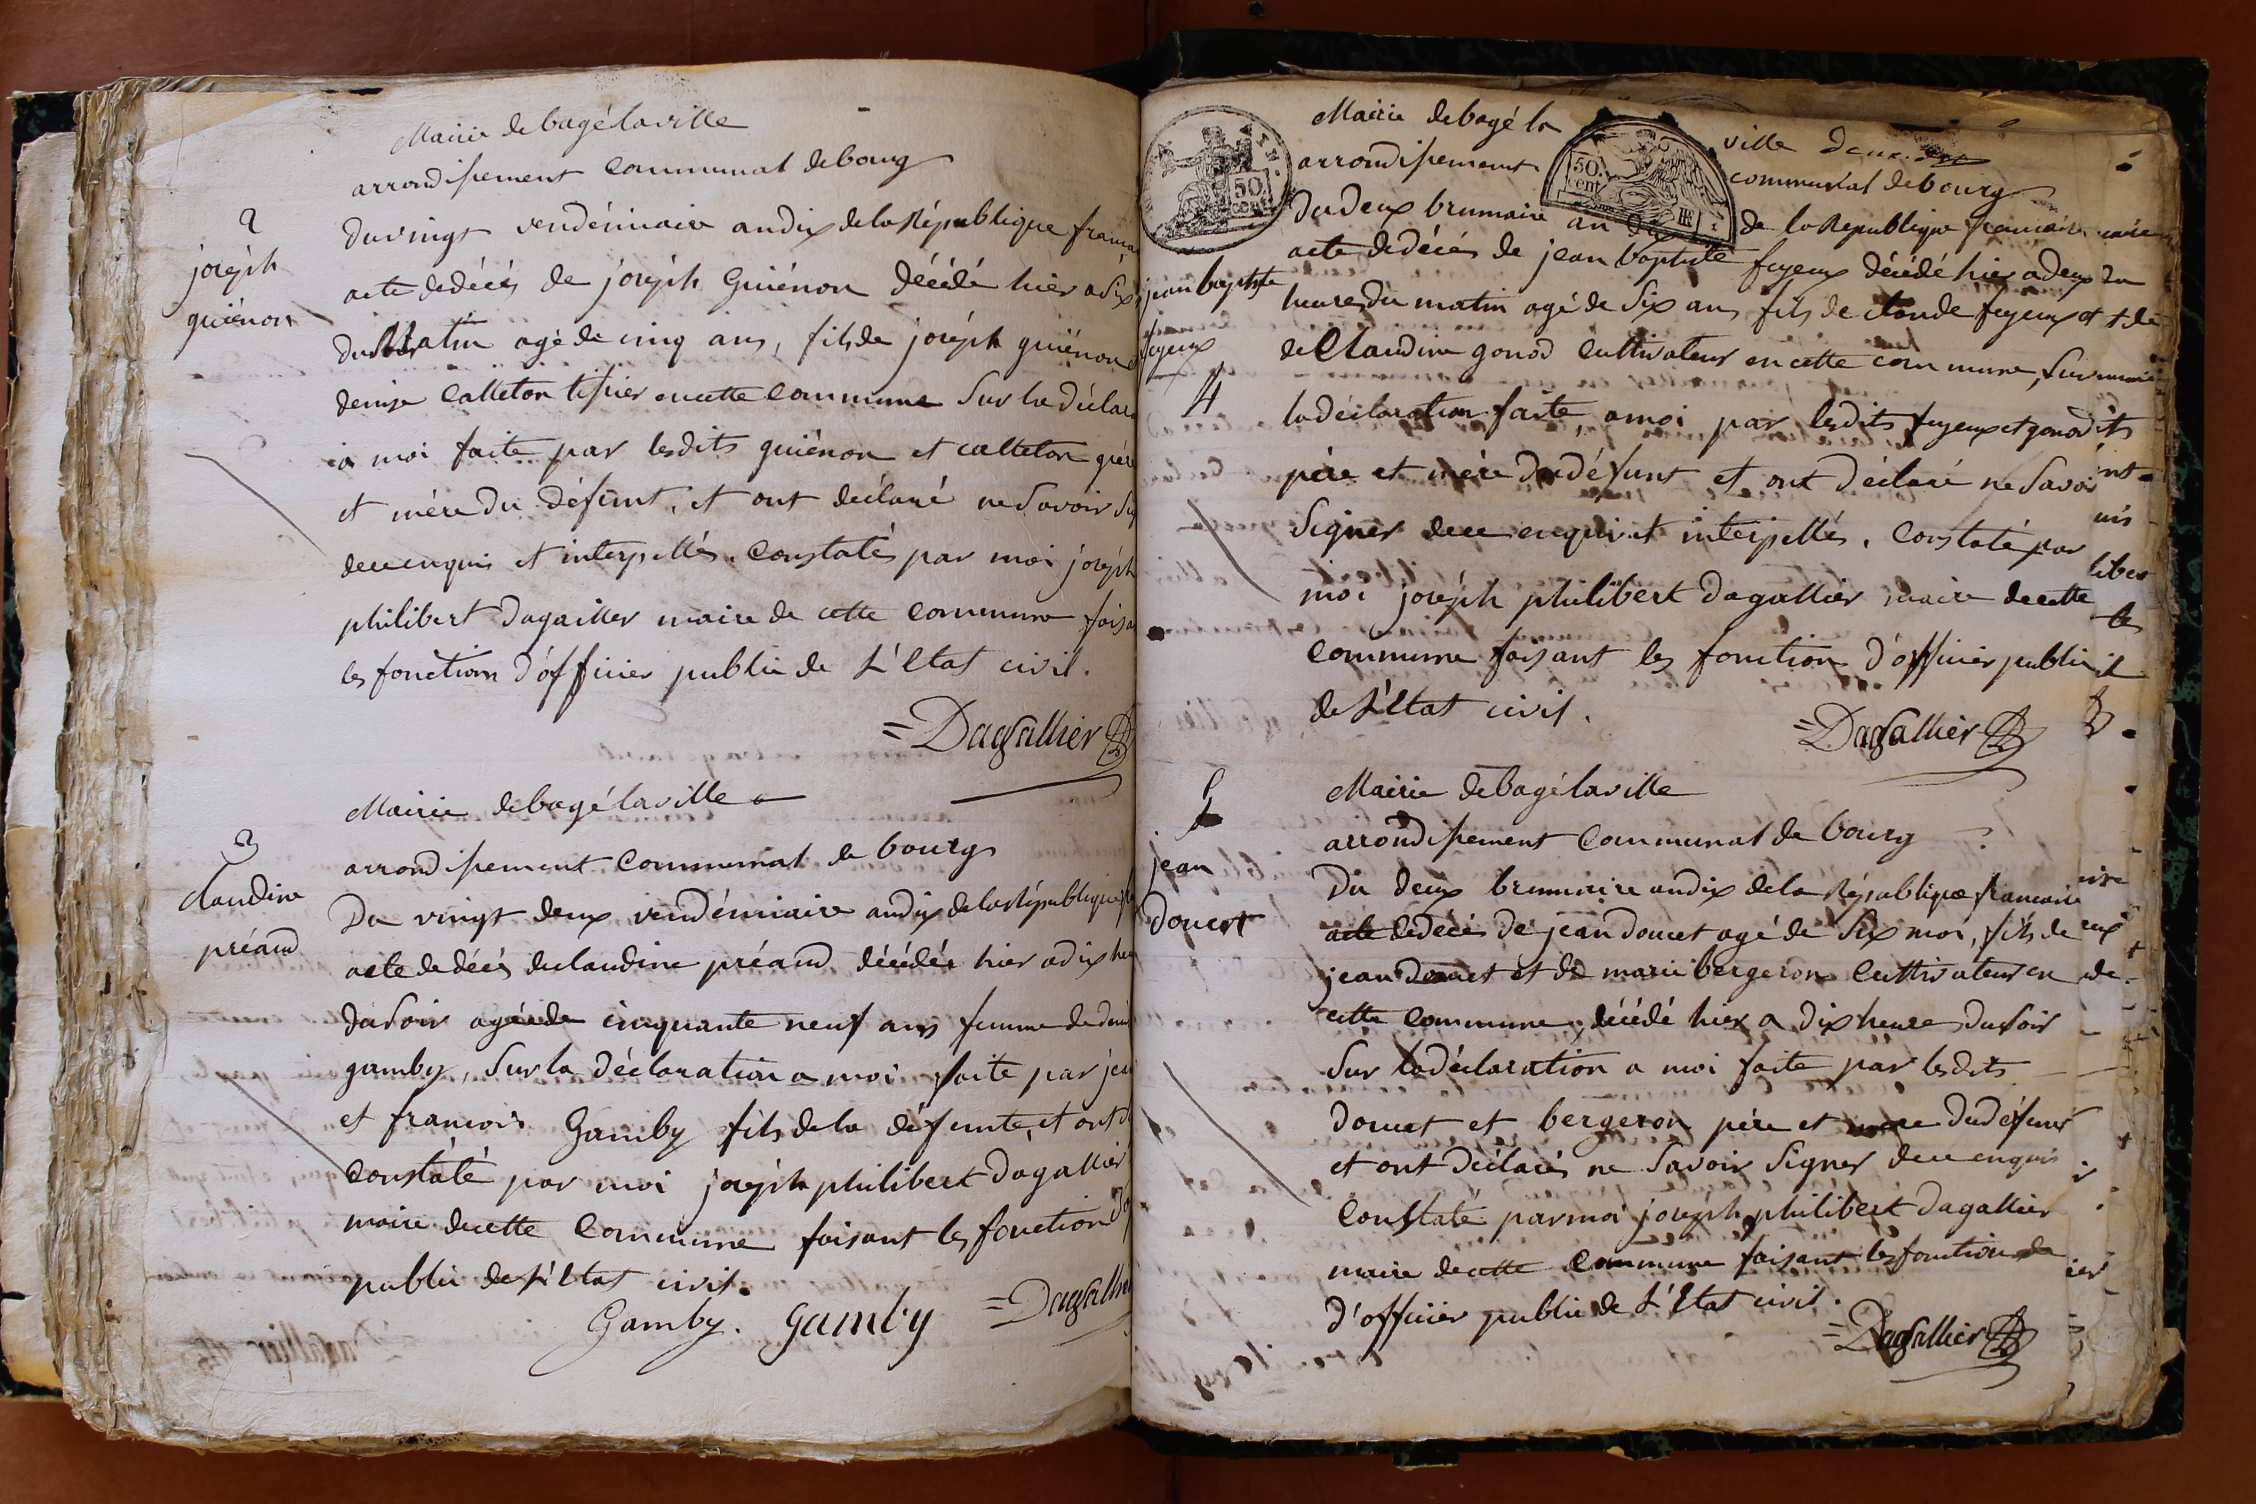 Mairie de bagé laville
arrondissement communal de bourg
2
joseph
guiénon
du vingt vendémiaire an dix de la République
acte de décés de joseph Guiénon décédé hier a six
du Matin agé de cinq ans, fils de joseph guiénon
denise Calleton tissier en cette Commune Sur la
à moi faite par lesdits guiénon et calleton
et mére du défunt, et ont déclaré ne Savoir
de ce enquis et interpellés. Constatés par moi joseph
philibert Dagallier maire de cette Commune
les fonction d'officier public de L'Etat civil.
=Dagallier
Mairie de bagé laville
arrondissement Communal de bourg
3
claudine
préaud
Du vingt deux vendémiaire an dix de la République
acte de décés de claudine préaud décédée hier a dix
du Soir agée de cinquante neuf ans femme de
gamby, Sur la déclaration a moi faite par
et francois Gamby fils de la défunte, et ont
Constaté par moi joseph philibert Dagallier
maire de cette Commune faisant les fonction
public de L'Etat civil.
Gamby. gamby =Dagallier
Mairie de bagé la ville
arrondissement communal de bourg
50. cent
50 cent
Du deux brumaire an dix de la République francaise
acte de décés de jean baptiste feyeux décédé hier a deux
jean baptiste
feyeux
4
heures du matin agé de Six ans fils de claude feyeux et
de Claudine gonod Cultivateur en cette commune, Sur
la déclaration faite, a moi par lesdits feyeux et gonod
pére et mére du défunt et ont déclaré ne Savoir
Signer de ce enquis et interpellés. Constaté par
moi joseph philibert dagallier maire de cette
Commune faisant les fonction d'officier public
de L'Etat civil.
=Dagallier
Mairie de bagé laville
arrondissement Communal de bourg
5
jean
doucet
Du deux brumaire an dix de la République francaise
acte de décés de jean doucet agé de Six moi, fils de
jean doucet et de marie bergeron Cultivateur en
cette Commune, décédé hier a dix heure du Soir
Sur la déclaration a moi faite par lesdits
doucet et bergeron pére et mere du défunt
et ont déclarés ne Savoir Signer de ce enquis
Constaté par moi joseph philibert dagallier
maire de cette Commune faisant les fonction de
d'officier public de L'Etat civil.
=Dagallier